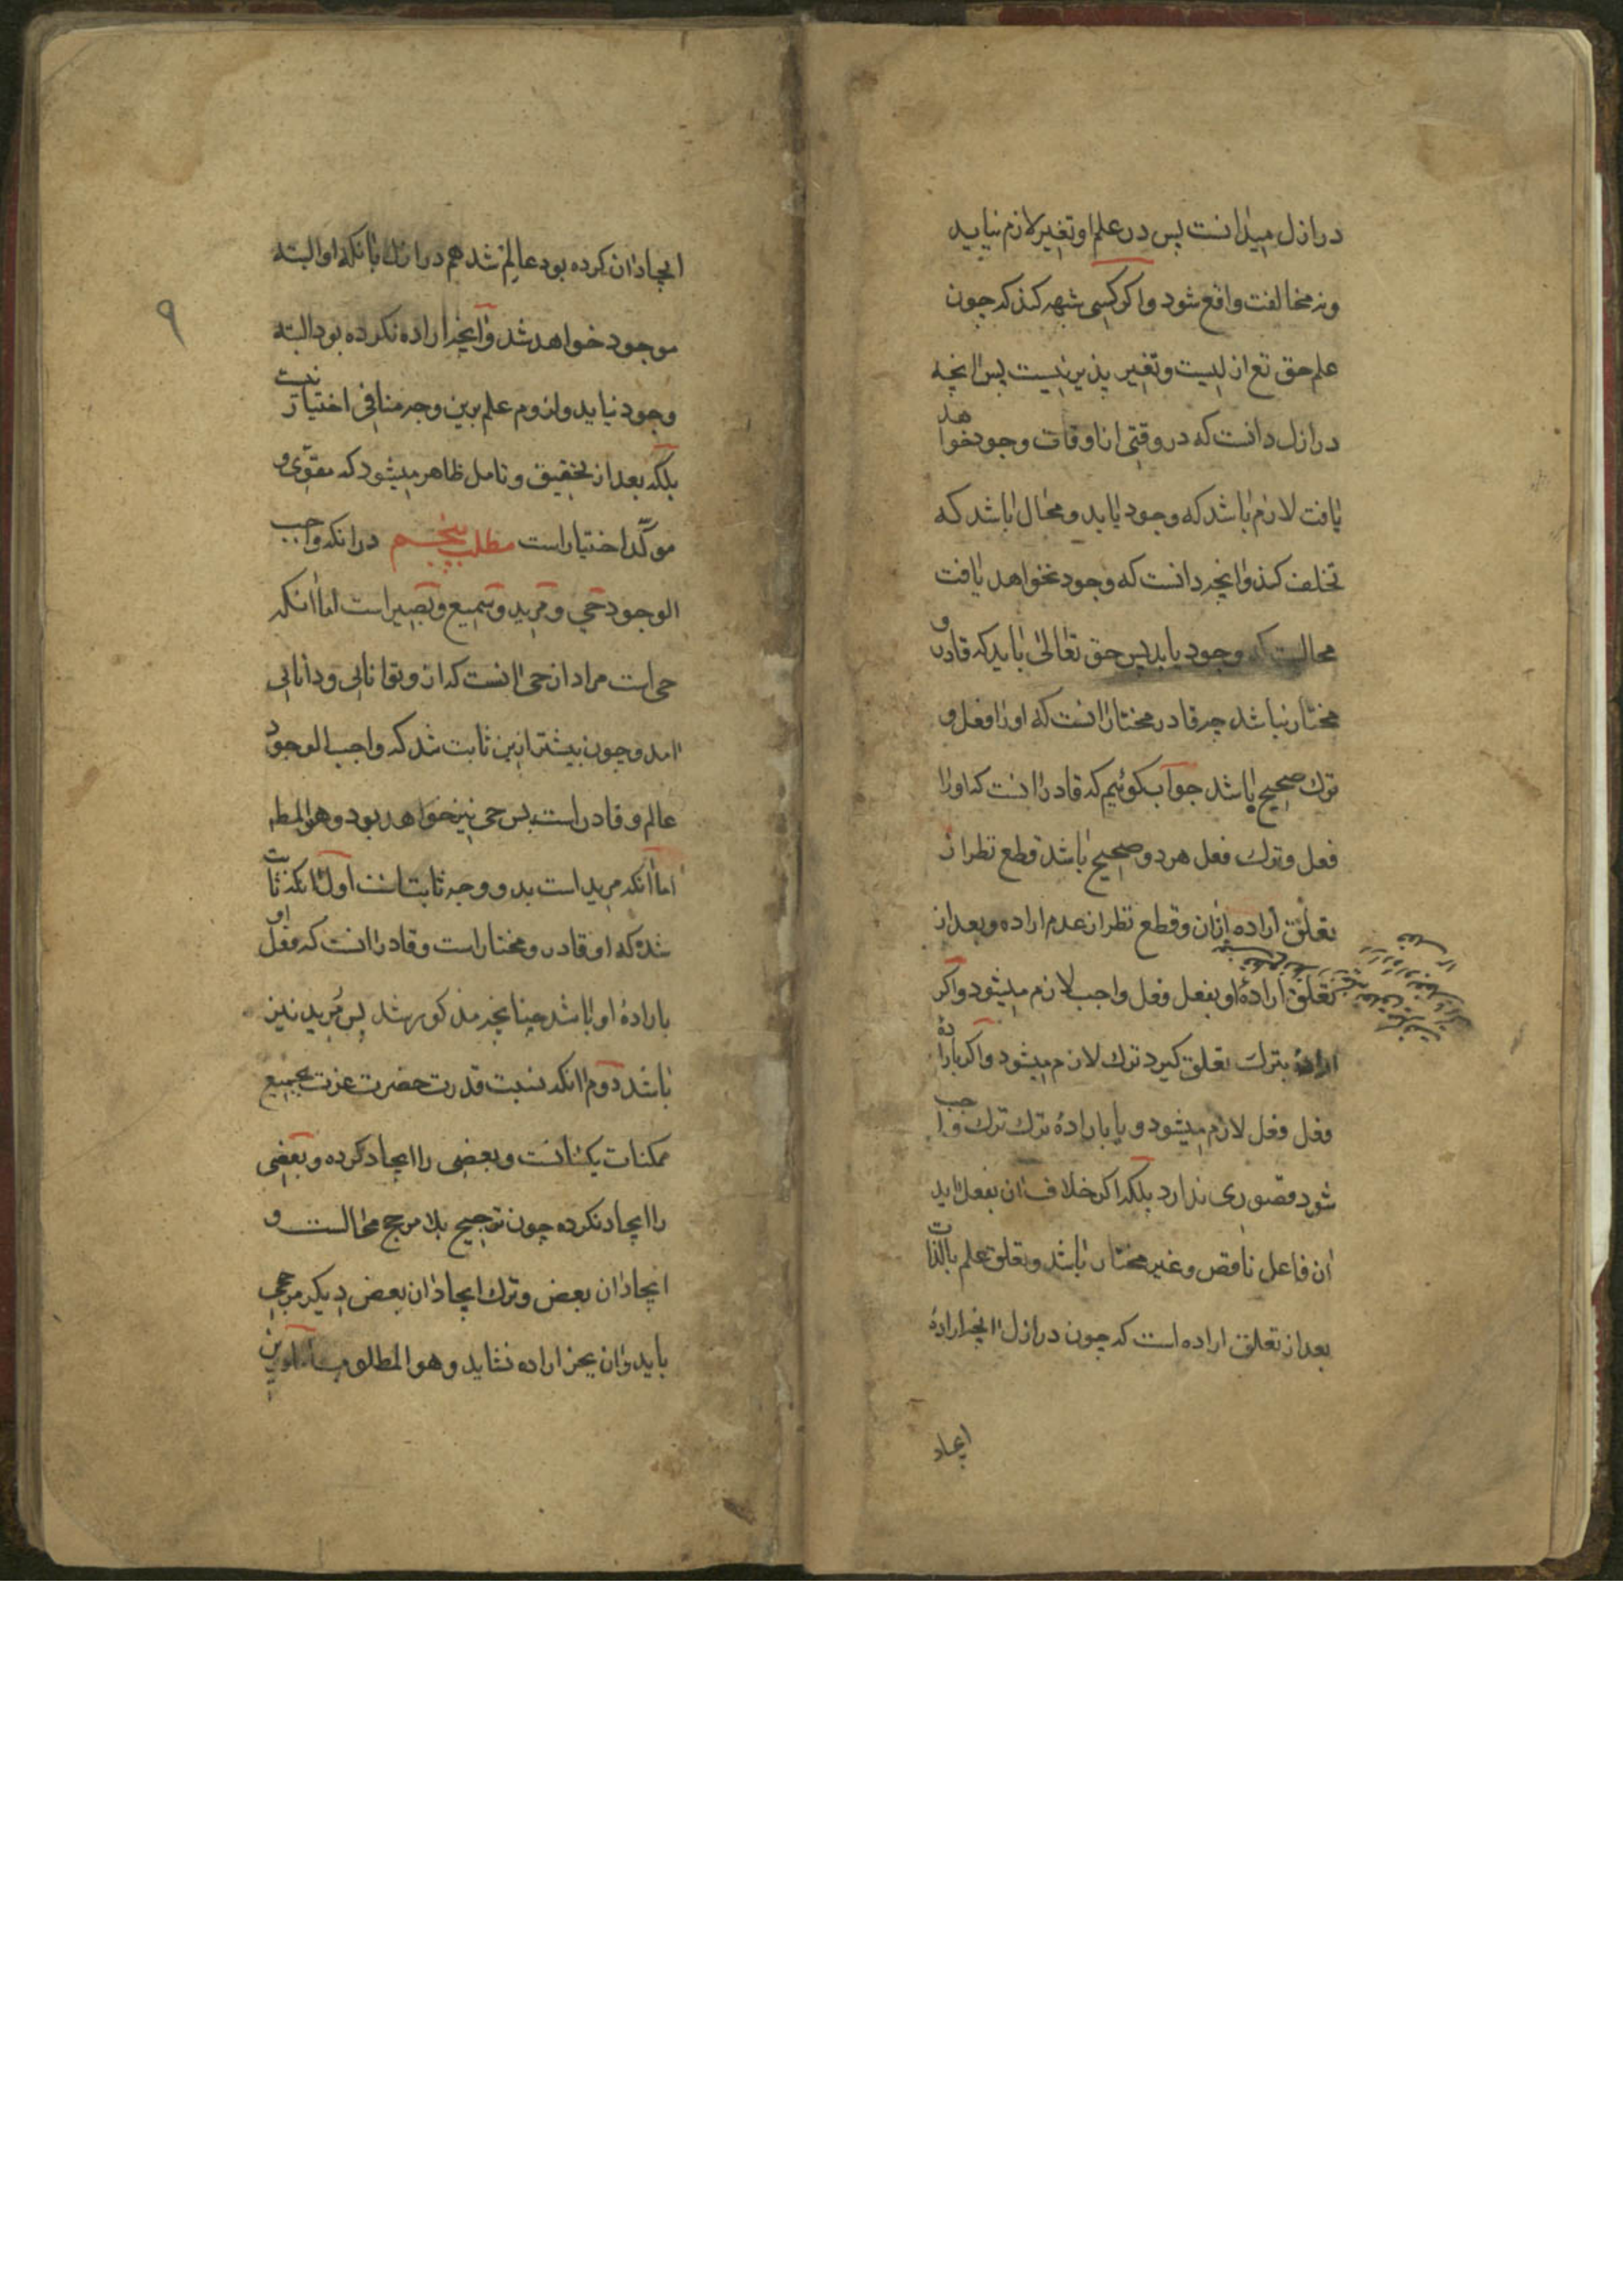 در ازل میدانست پس در علم او تغییر لازم نیاید
و نه مخالفت واقع شود و اکر کسی شبهه کند که چون
علم حق تع ازلیست و تغییر پذیر نیست پس انچه
در ازل دانست که در وقتی از اوقات وجود خواهد
یافت لازم باشد که وجود یابد و محال باشد که
تخلف کند و انچه دانست که وجود نخواهد یافت
محالست که وجود یابد پس حق تعالی باید که قادر و
مختار نباشد چه قادر مختار انست که او را فعل و
ترك صحیح باشد جواب بکوئیم که قادر انست که او را
فعل و ترك فعل هر دو صحیح باشد قطع نظر از
تعلق اراده ازان و قطع نظر از عدم اراده و بعد از
تعلق ارادهٔ او بفعل فعل واجب لازم میشود و اکر
ارادهٔ بترك تعلق کیرد ترك لازم میشود و اکر بارادهٔ
فعل فعل لازم میشود و یا بارادهٔ ترك ترك واجب
شود قصوری ندارد بلکه اکر خلاف ان بفعل اید
ان فاعل ناقص و غیر مختار باشد و تعلق علم بالذات
بعد از تعلق اراده است که چون در ازل انچه ارادهٔ
ایجاد
۹
ایجاد ان کرده بود عالم شد هم در ازل بانکه او البته
موجود خواهد شد و انچه اراده نکرده بود البته
وجود نیاید و لزوم علم برین وجه منافی اختیار نیست
بلکه بعد از تحقیق و تامل ظاهر میشود که مقوّی و
موکّد اختیار است مطلب پنجم در انکه واجب
الوجود حی و مرید و سمیع و بصیر است اما انکه
حی است مراد از حی انست که ازو توانایی و دانایی
اید و چون بیشتر ازین ثابت شد که واجب الوجود
عالم و قادر است پس حی نیز خواهد بود و هو المط
اما انکه مرید است بدو وجه ثابت است اول انکه ثابت
شده که او قادر و مختار است و قادر انست که فعل او
بارادهٔ او باشد چنانچه مذکور شد پس مُرید نیز
باشد دوم انکه نسبت قدرت حضرت عزت بجمیع
ممکنات یکسانست و بعضی را ایجاد کرده و بعضی
را ایجاد نکرده چون ترجیح بلا مرجح محالست و
ایجاد ان بعض و ترك ایجاد ان بعض دیکر مرجحی
باید و ان بجز اراده نشاید و هو المطلوب